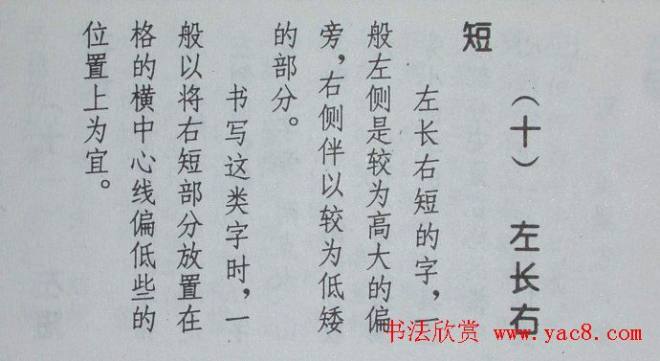 （十） 左长右
短
左长右短的字，一
般左侧是较为高大的偏
旁，右侧伴以较为低矮
的部分。
书写这类字时，一
般以将右短部分放置在
格的横中心线偏低些的
位置上为宜。
书法欣赏 www.yac8.com